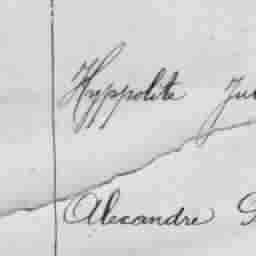 Hyppolite
Alexandre